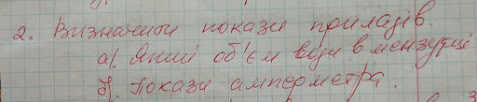 2. Визначити покази приладів.
а). Який об'єм води в мензурці
б). Покази амперметра.